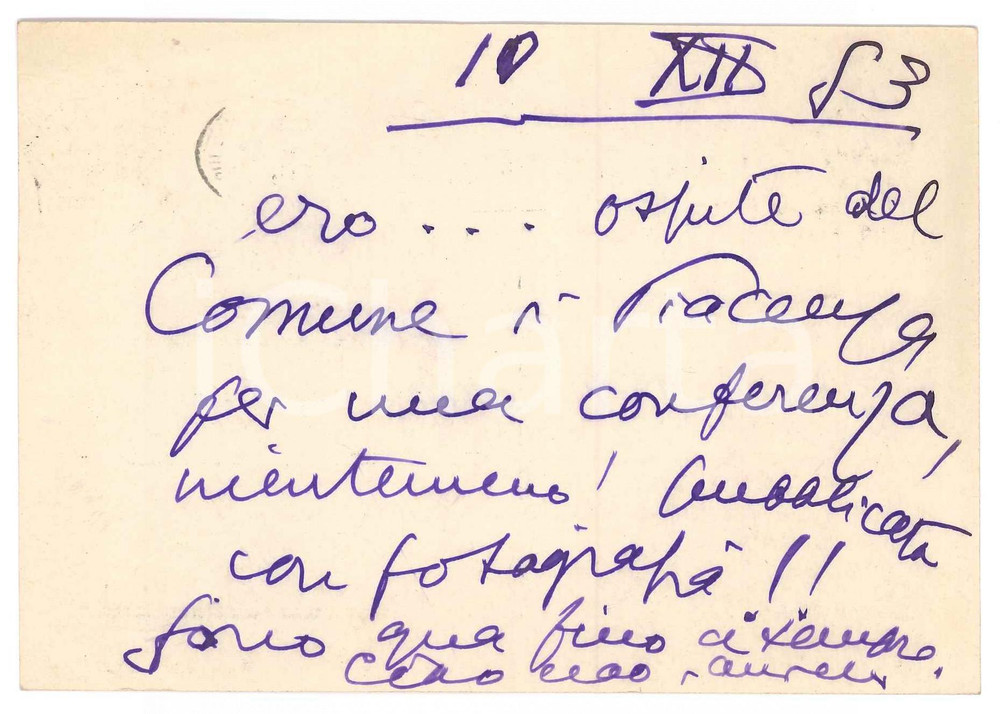 10 XII 83
ero ... ospite del
Comune i Piacenza
per una conferenza,
nientemeno! pubblicata
con fotografia!!
Sono qua fino
ciao ciao